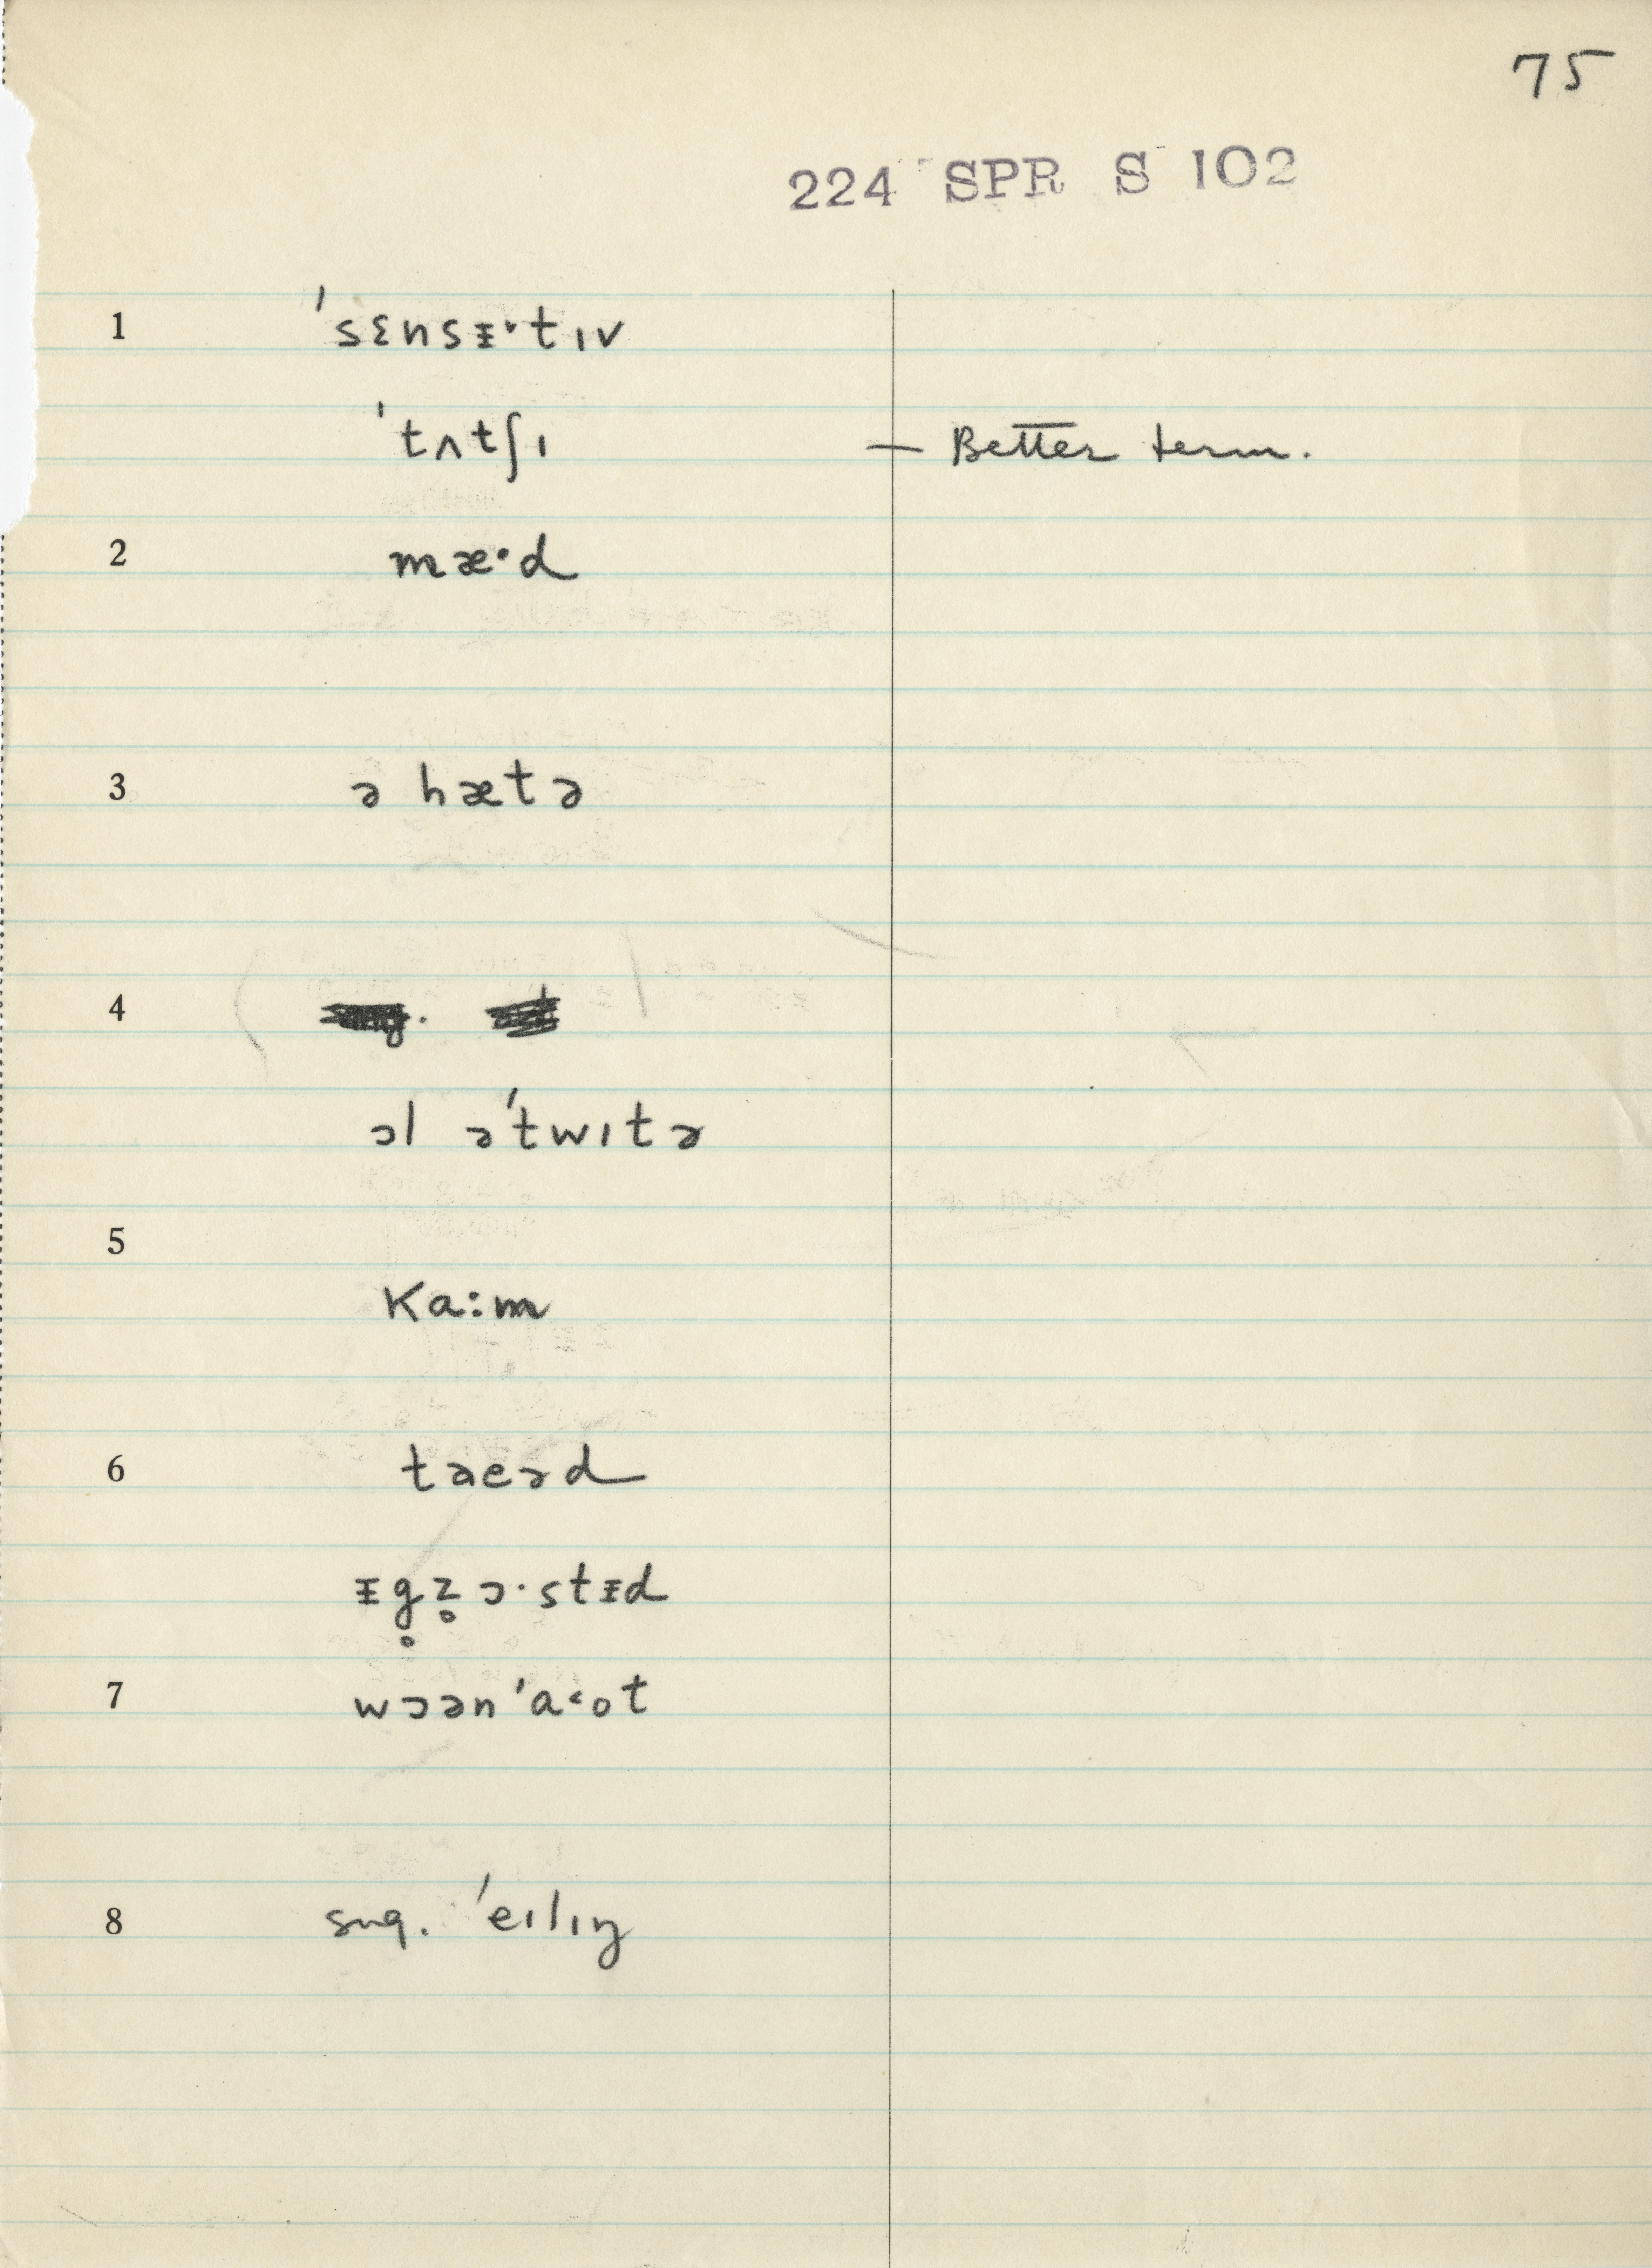 75
224 SPR S 102
1 ˈsɛnsᵻ˅tɪv
ˈtʌtʃɪ — Better term.
2 mæ·d
3 ə hætə
4
ɔl əˈtwɪtə
5
Ka:m
6 taeəd
ᵻg̥z̥ɔ·stᵻd
7 wɔənˈa˂ot
8 sug. ˈeɪlɪŋ